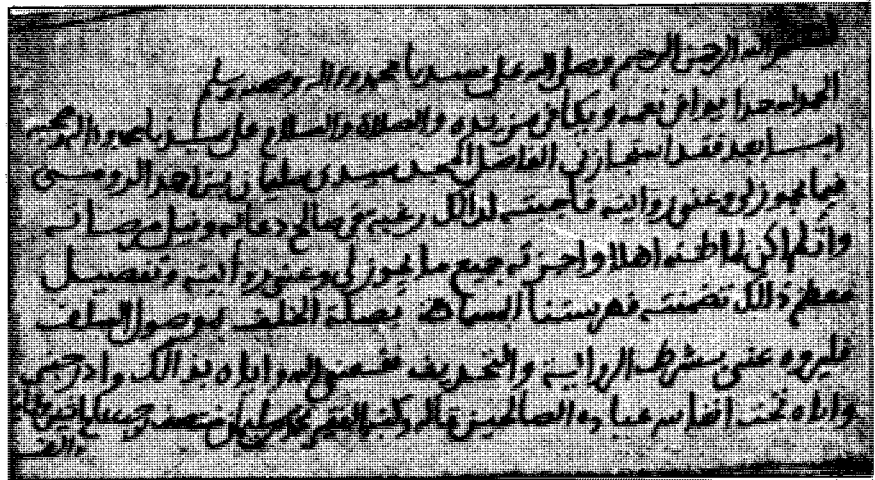 بسم الله الرحمن الرحيم وصلى الله على سيدنا محمد وءاله وصحبه وسلم
الحمد لله حمدا يوافي نعمه ويكافئ مزيده والصلاة والسلام على سيدنا محمد وءاله وصحبه
اما بعد فقد استجازني الفاضل سيدي سليمان بن احمد
فيما يجوز لي وعني روايته فاجبته لذالك رغبة في صالح دعائه ونيل مرضاته
وان لم اكن لما ظنه اهلا واجزته جميع ما يجوز لي وعني روايته وتفصيل
معظم ذالك تضمنته فهرستنا المسماة بصلة الخلف بموصول السلف
فليروه عني بشرط الرواية والتحديث نفعني الله واياه بذالك وادرجني
واياه تحت انفاس عباده الصالحين قاله وكتبه الفقير محمد بن سليمان
والف